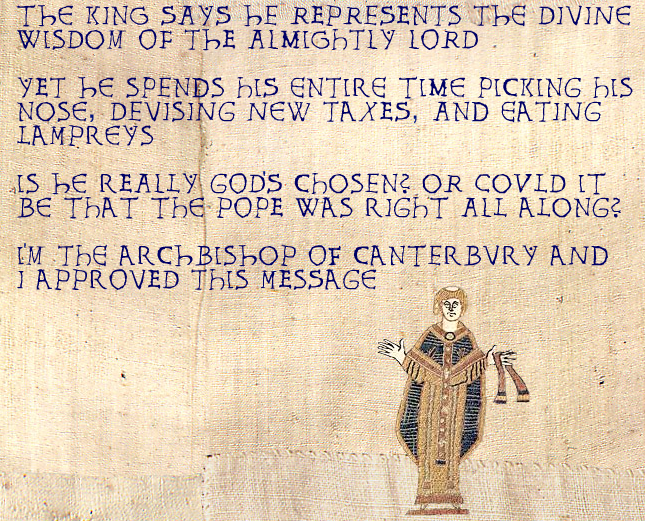 THE KING SAYS HE REPRESENTS THE DIVINE
WISDOM OF THE ALMIGHTLY LORD
YET HE SPENDS HIS ENTIRE TIME PICKING HIS
NOSE, DEVISING NEW TAXES, AND EATING
LAMPREYS
IS HE REALLY GOD'S CHOSEN? OR COVLD IT
BE THAT THE POPE WAS RIGHT ALL ALONG?
I'M THE ARCHBISHOP OF CANTERBVRY AND
I APPROVED THIS MESSAGE